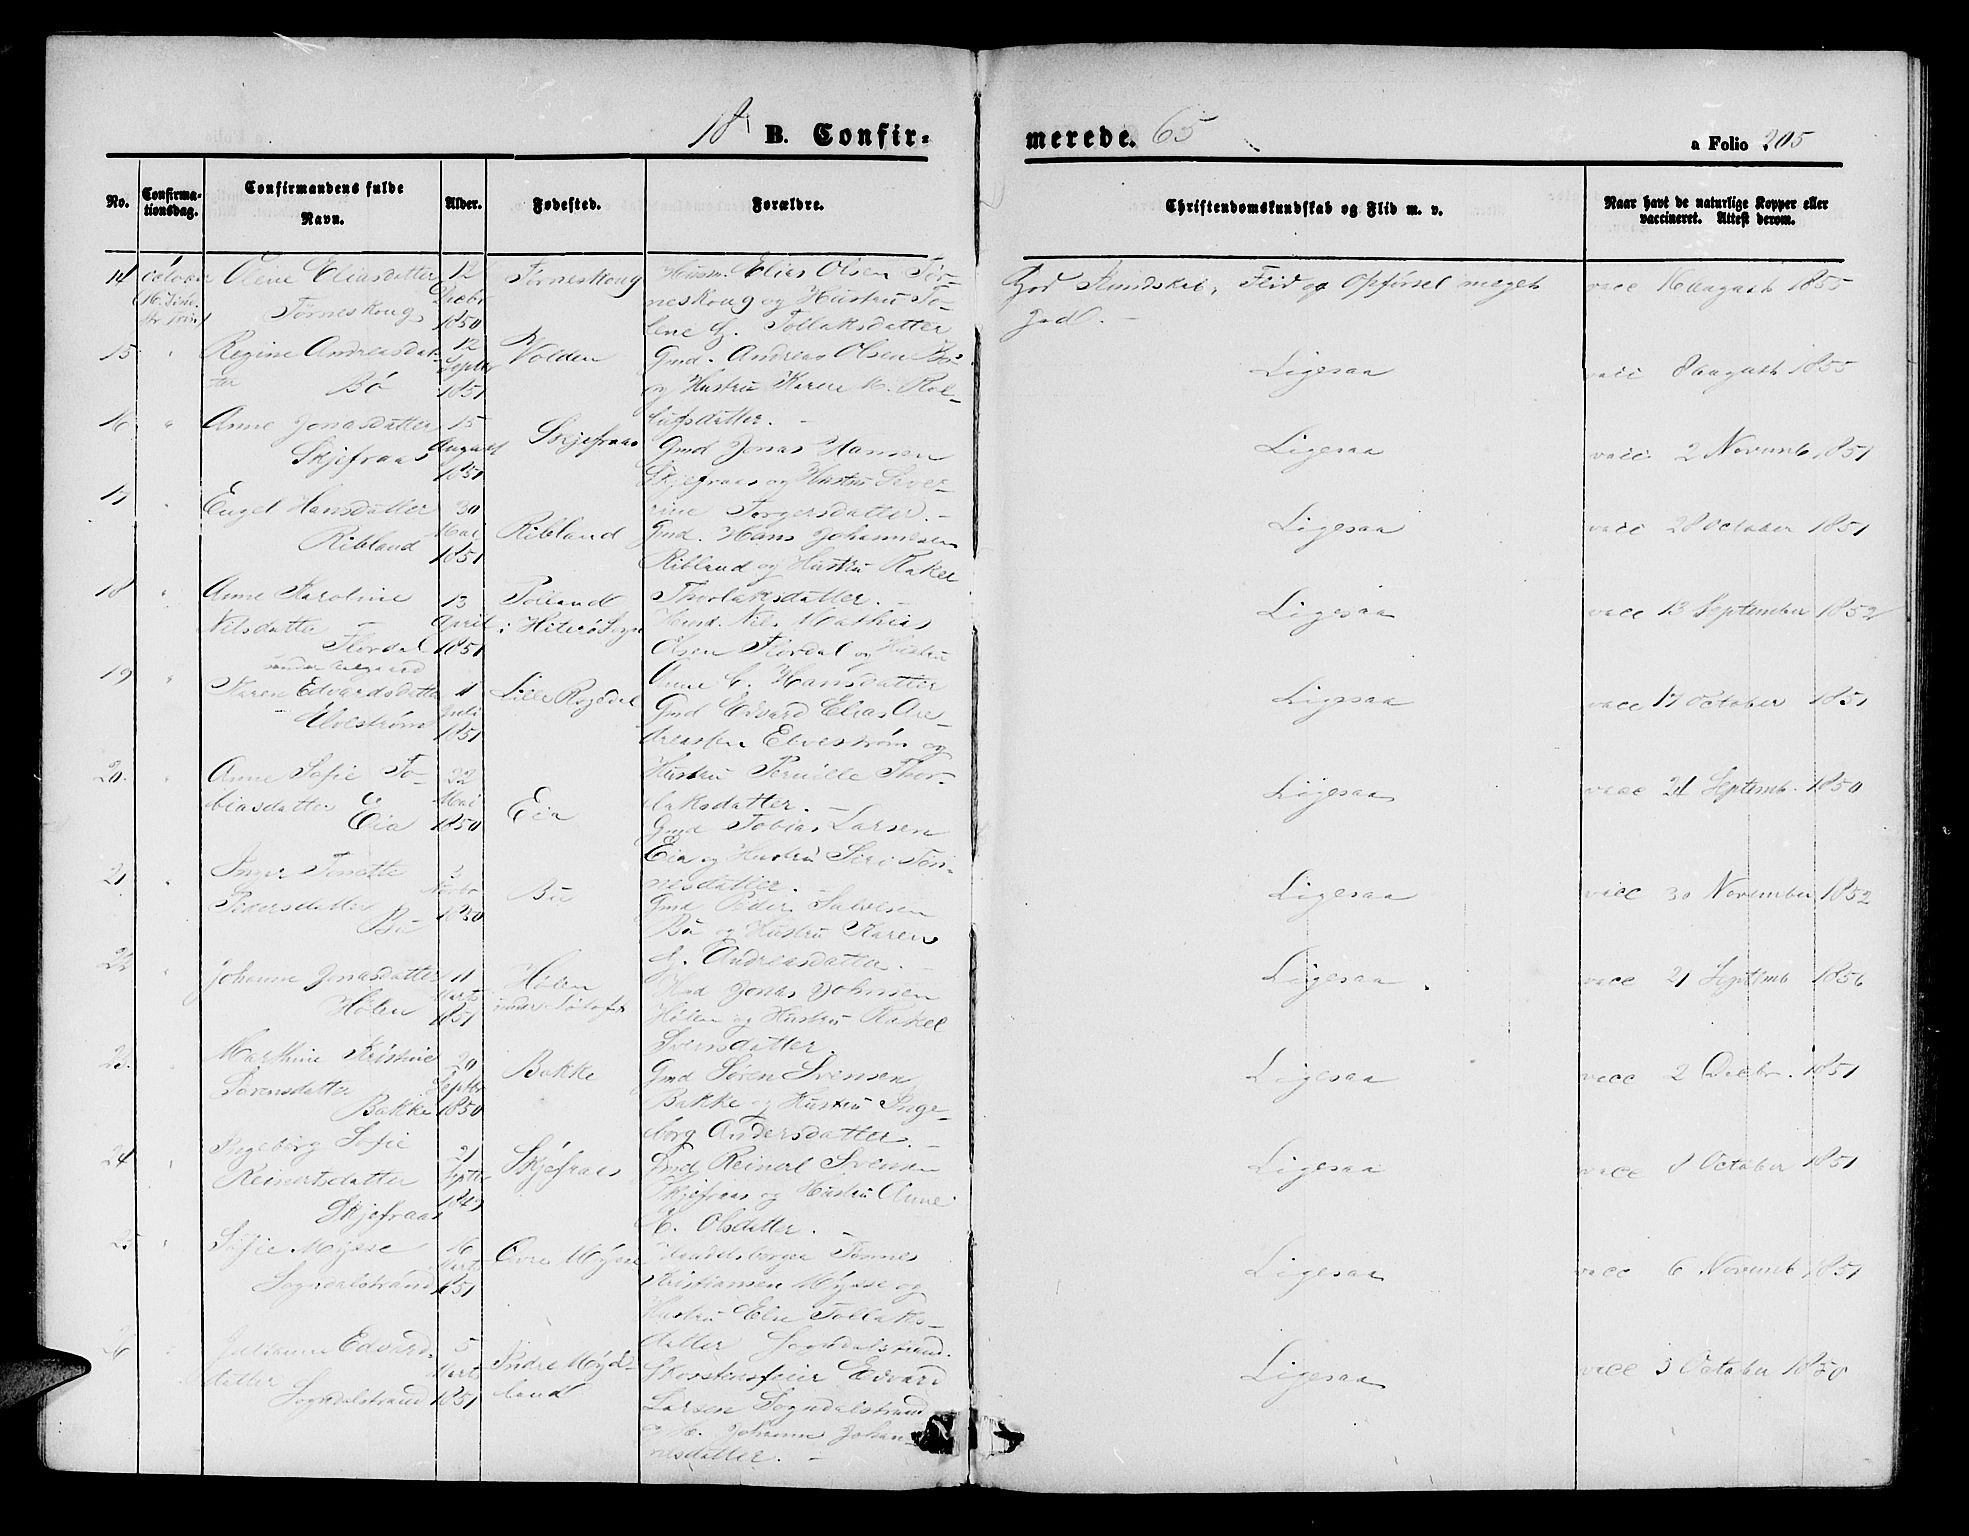 18 B. Confir-
merede. 65
a Folio 205
No.
Confirma-
tionsdag.
Confirmandens fulde
Navn.
Alder.
Fødested.
Forældre.
Christendomskundskab og Flid m. v.
Naar havt de naturlige Kopper eller
vaccineret. Attest derom.
14
Oline Eliasdatter
Törneskoug
12
Decbr
1850
Törneskoug
Husm. Elias Olsen Tör-
neskoug og Hustru To-
lene G. Tollaksdatter
God Kundskab, Flid og Opförsel meget
god. -
vacc 16 august 1855
15 "
Regine Andreasdat-
ter Bö
12
Septbr
1851
Volden
Gmd. Andreas Olsen Bö
og Hustru Karen M.
datter. -
Ligesaa
vacc 8 august 1855
16 "
Anne Jonasdatter
Skjefraas
15
August
1851
Skjefraas
Gmd Jonas Hansen
Skjefraas og Hustru Seve-
rine Torgersdatter. -
Ligesaa
vacc 2 Novemb 1851
17 "
Engel Hansdatter
Ribland
30
Mai
1851
Ribland
Gmd. Hans Johannesen
Ribland og Hustru Rakel
Thorlaksdatter. -
Ligesaa
vacc 28 October 1851
18 "
Anne Karoline
Nilsdatter -
Flordal
13
April
1851
i Hiterö Sogn
Husmd. Nils Mathias
Olsen Flordal og Hustru
Anne C. Hansdatter
Ligesaa
vacc 13 September 1852
19 "
Karen Edvardsdatter
Elveström
11
Juli
1851
Lille Rægedal
Gmd Edvard Elias An-
dreassen Elveström og
Hustru Pernille Thor-
laksdatter. -
Ligesaa
vacc 17 October 1851
20. "
Anne Sofie To-
biasdatter
Eia
22
Mai
1850
Eia
Gmd Tobias Larsen
Eia og Hustru Siri Tön-
nesdatter. -
Ligesaa
vacc 21 Septemb. 1850
21 "
Inger Tonette
Pedersdatter
Bö
Novbr
1850
Bö
Gmd Peder Salvesen
Bö og Hustru Karen
G. Andreasdatter. -
Ligesaa
vacc 30 November 1852
22 "
Johanne Jonasdatter
Hölen
11
Marts
1851
Hölen
Hmd Jonas Johnsen
Hölen og Hustru Rakel
Svensdatter.
Ligesaa
vacc 21 Septemb 1856
23. "
Marthine Kristine
Sörensdatter
Bakke
20
Septbr
1850
Bakke
Gmd Sören Svensen
Bakke og Hustru Inge-
borg Andersdatter. -
Ligesaa
vacc 2 Decbr. 1851
24 "
Ingeborg Sofie
Reinertsdatter
Skjefraas
21
Septbr
1849
Skjefraas
Gmd Reinert Svensen
Skjefraas og Hustru Anne
M. Olsdatter. -
Ligesaa
vacc 8 October 1851
25 "
Sofie Mysse
Sogndalstrand
16
Marts
1851
Övre Mysse
Handelsborger Tönnes
Kristiansen Mysse og
Hustru Else Tollaks-
datter Sogndalstrand.
Ligesaa
vacc 6 Novemb 1851
26 "
Julianne Edvard-
datter
Sogndalstrand
5
Marts
1851
Indre Myd-
land
Skorstensfeier Edvard
Larsen Sogndalstrand
og H. Johanne Johan-
nesdatter. -
Ligesaa
vacc 3 October 1850